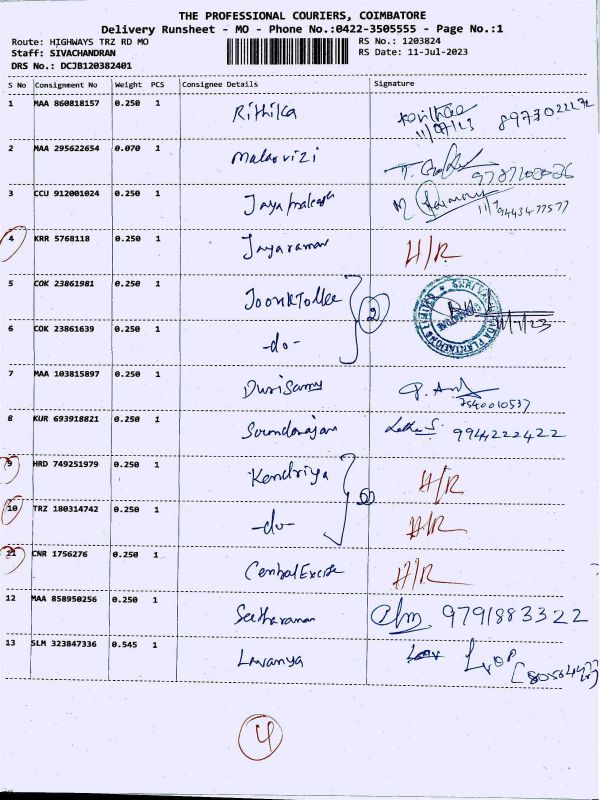 THE PROFESSIONAL COURIERS, COIMBATORE
Delivery Runsheet - MO - Phone No.:0422-3505555 - Page No.:1
Route: HIGHWAYS TRZ RD MO RS No.: 1203824
Staff: SIVACHANDRAN RS Date: 11-Jul-2023
DRS No.: DCJB120382401
S No Consignment No Weight PCS Consignee Details Signature
1 MAA 860818157 0.250 1 Rithika
11/07/23
2 MAA 295622654 0.070 1 Malarvizi
3 CCU 912001024 0.250 1 Jayaprakash 9443477577
4 KRR 5768118 0.250 1 Jayaraman H/R
5 COK 23861981 0.250 1 2
6 COK 23861639 0.250 1 -do-
7 MAA 103815897 0.250 1 Durisamy
7540010537
8 KUR 693918821 0.250 1 Soundarajan 9944222422
9 HRD 749251979 0.250 1 Kendriya H/R
10 TRZ 180314742 0.250 1 -do- H/R
11 CNR 1756276 0.250 1 Central Excise H/R
12 MAA 858950256 0.250 1 Seetharaman 9791883322
13 SLM 323847336 0.545 1 Lavanya
4